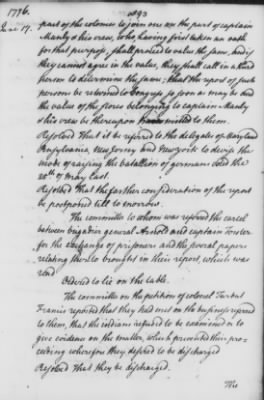 1776.
June 17.
293
part of the colonies to join one on the part of captain
Manly & his crew, who, having first taken an oath
for that purpose, shall proceed to value the same, and if
they cannot agree in the value, they shall call in a third
person to determine the same; that the report of such
persons be returned to Congress as soon as may be and
the value of the stores belonging to captain Manly
& his crew be thereupon remitted to them.
Resolved That it be referred to the delegates of Maryland
Pensylvania, New jersey and New york to devise the
mode of raising the batallion of germans voted the
25th of May last.
Resolved That the farther consideration of the report
be postponed till to morrow.
The committee to whom was referred the cartel
between brigadier general Arnold and captain Forster
for the exchange of prisoners and the several papers
relating thereto brought in their report, which was
read
Ordered to lie on the table.
The committee on the petition of colonel Turbut
Francis reported that they had met on the business referred
to them, that the indians refused to be examined or to
give evidence on the matter, which prevented their pro-
ceeding wherefore they desired to be discharged
Resolved That they be discharged.
The